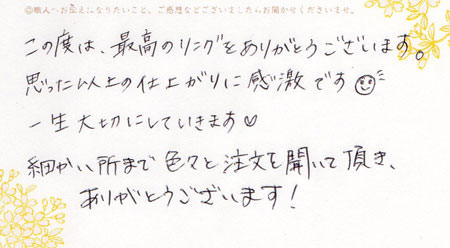 ◎職人へお伝えになりたいこと、ご感想などございましたらお聞かせくださいませ。
この度は、最高のリングをありがとうございます。
思った以上の仕上がりに感激です☺
一生大切にしていきます♡
細かい所まで色々と注文を聞いて頂き、
ありがとうございます！